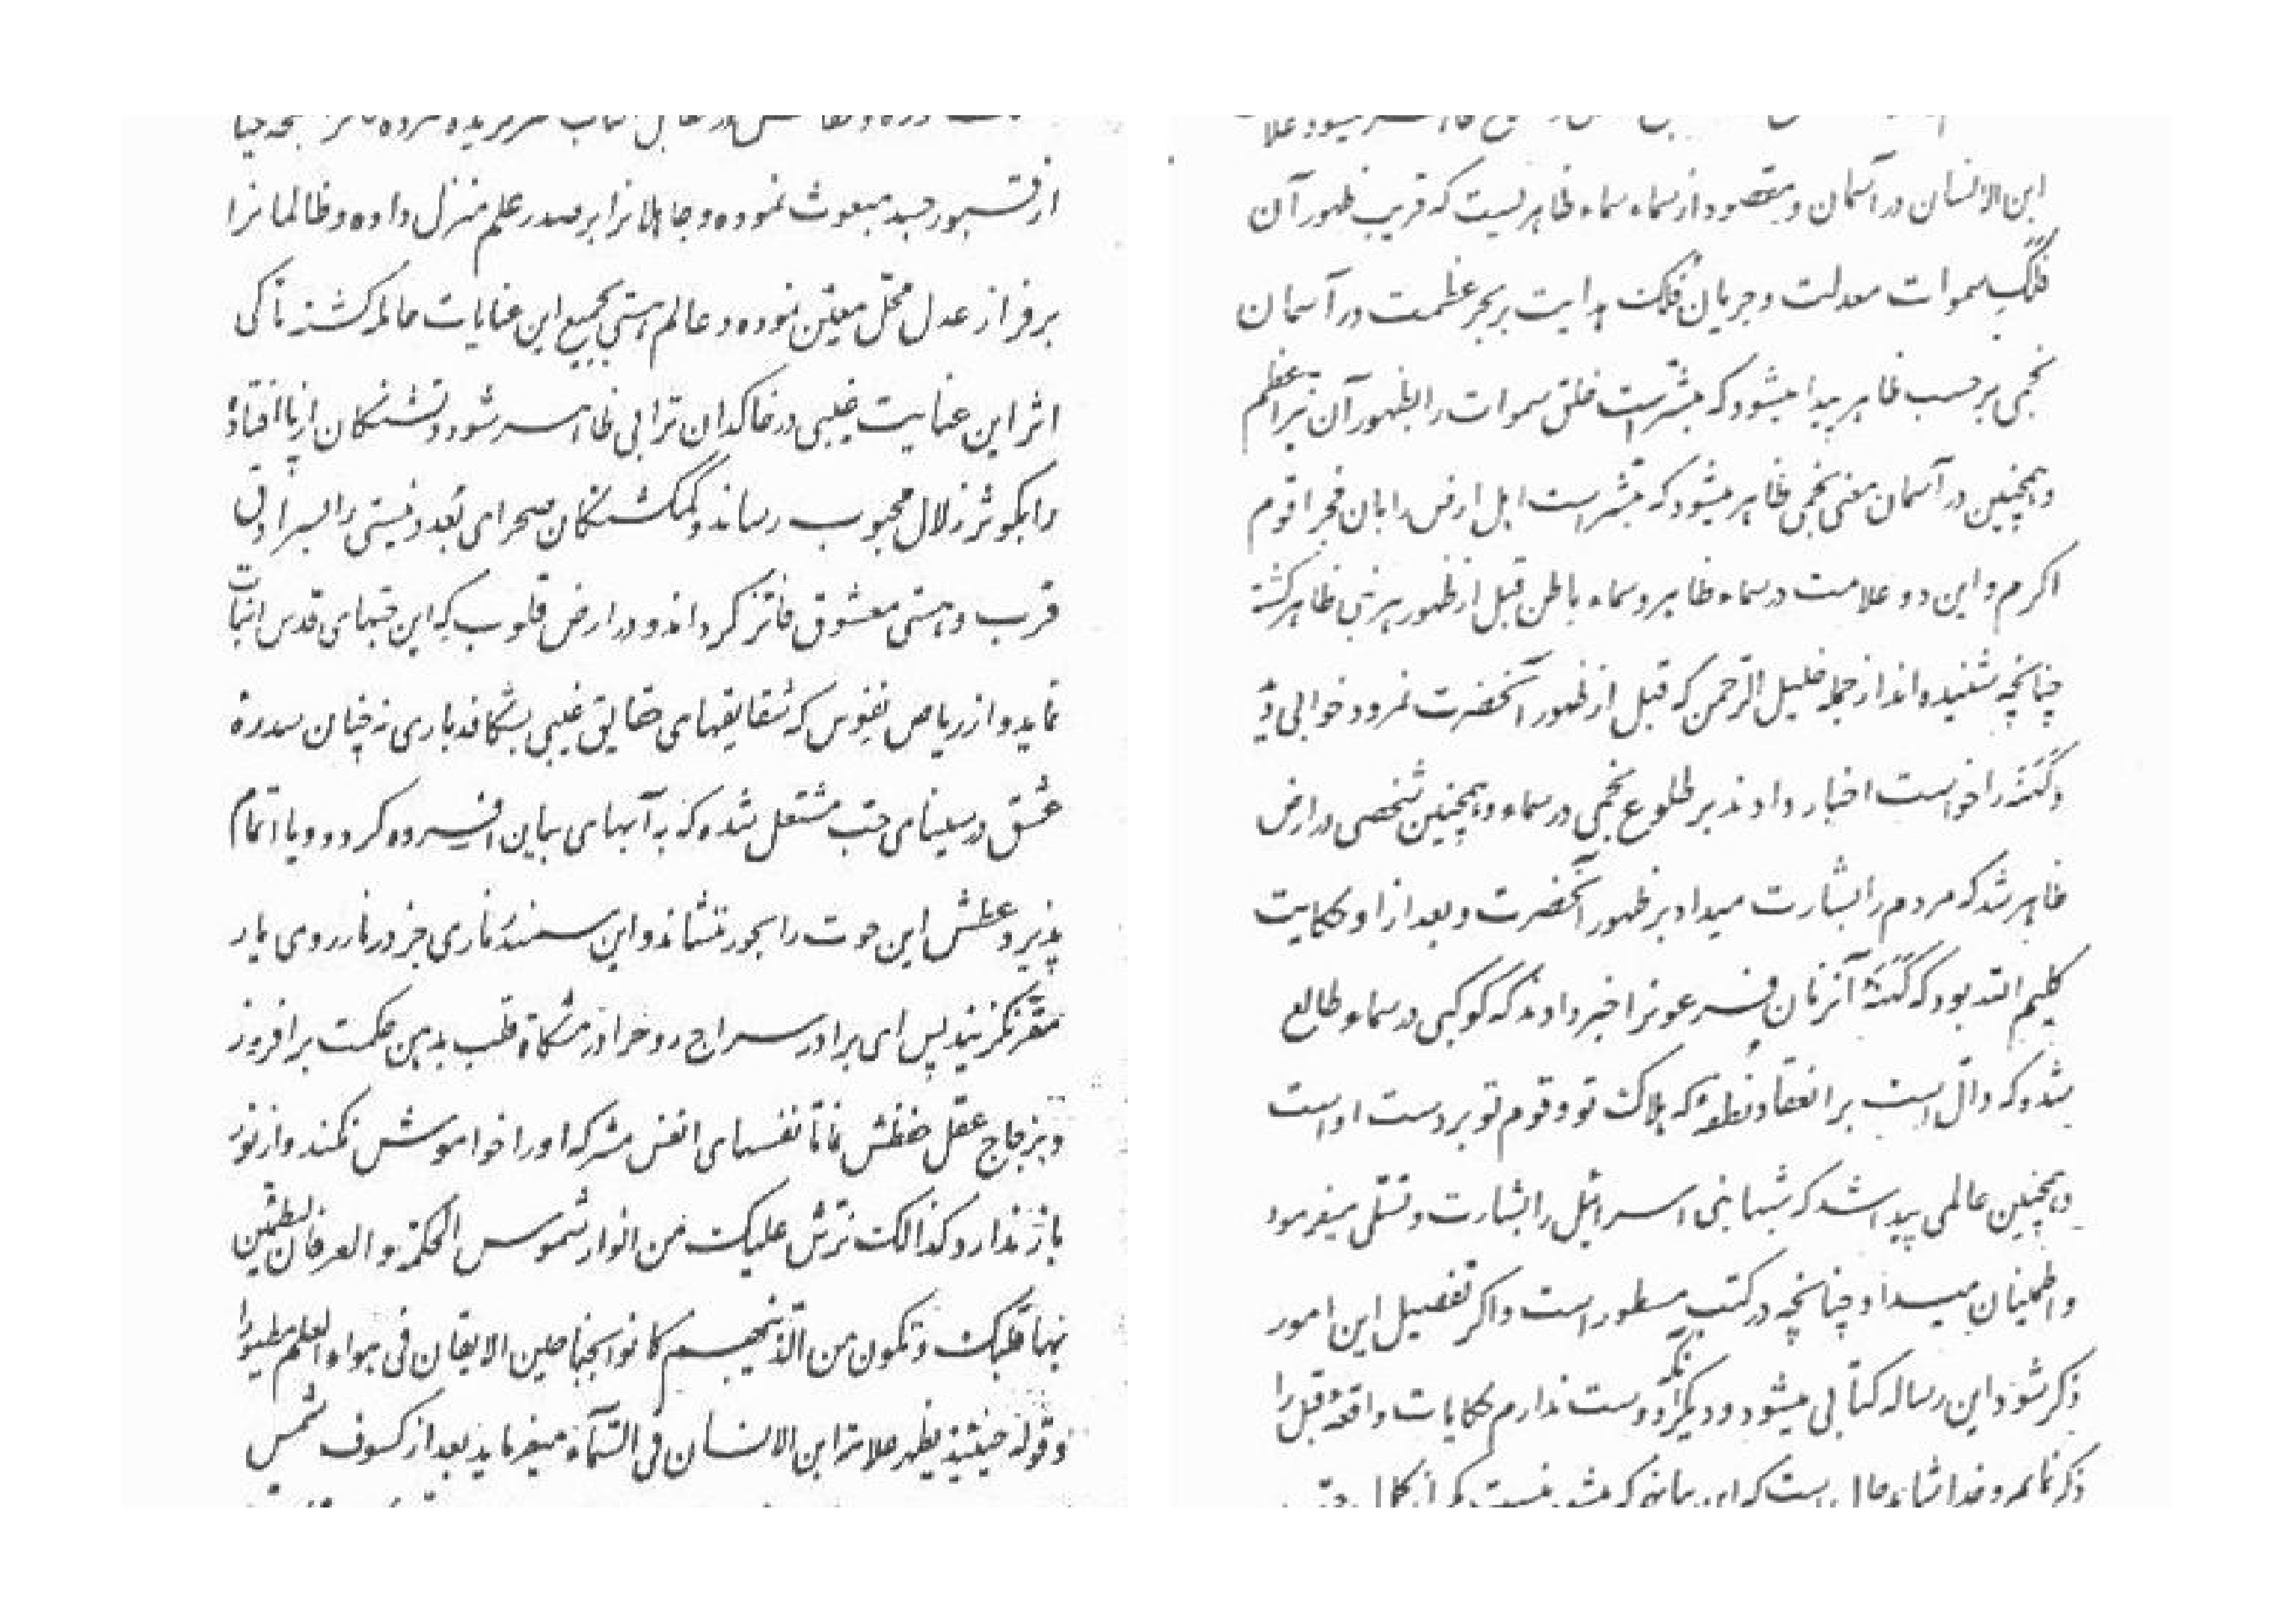 از قبور جسد مبعوث نموده و جاهلانرا بر صدر علم منزل داده و ظالمانرا
بر فراز عدل محلّ معیّن نموده و عالم هستی بجمیع این عنایات حامله گشته تا کی
اثر این عنایت غیبی در خاکدان ترابی ظاهر شود و تشنگان از پا افتاده
را بکوثر زلال محبوب رساند و گمگشتگان صحرای بُعد و نیستی را بسرادق
قرب و هستی معشوق فائز گرداند و در ارض قلوب که این حبّهای قدس انبات
نماید و از ریاض نفوس که شقایقهای حقایق غیبی بشکافد باری نه چنان سدرهٔ
عشق در سینای حبّ مشتعل شده که به آبهای بیان افسرده گردد و یا اتمام
پذیرد عطش این حوت را بحور ننشاند و این سمندهٔ ناری جز در نار روی یار
مقرّ نگزیند پس ای برادر سراج روح را در مشکاة قلب بدهن حکمت بر افروز
و بزجاج عقل حفظش نما تا نفسهای انفس مشرکه او را خواموش نکند و از نور
باز ندارد و کذالک نرشّ علیک من انوار شموس الحکمة و العرفان لیطمئن
بها قلبک و تکون من الّذینهم کانوا بجناحین الایقان فی هواء العلم مطیرا
و قوله حینئذ یظهر علامة ابن الانسان فی السّمآء میفرماید بعد از کسوف شمس
ابن الانسان در آسمان و مقصود از سماء سماء ظاهریست که قریب ظهور آن
فلک سموات معدلت و جریان فُلک هدایت بر بحر عظمت در آسمان
نجمی بر حسب ظاهر پیدا میشود که مبشّر است خلق سموات را بظهور آن نیّر اعظم
و همچنین در آسمان معنی نجمی ظاهر میشود که مبشّر است اهل ارض را بان فجر اقوم
اکرم و این دو علامت در سماء ظاهر و سماء باطن قبل از ظهور هر نبی ظاهر گشته
چنانچه شنیده‌اند از جمله خلیل الرّحمن که قبل از ظهور آنحضرت نمرود خوابی دید
و کَهَنه را خواست اخبار دادند بر طلوع نجمی در سماء و همچنین شخصی در ارض
ظاهر شد که مردم را بشارت میداد بر ظهور آنحضرت و بعد از او حکایت
کلیم اللّه بود که کَهَنهٔ آنزمان فرعونرا خبر دادند که کوکبی در سماء طالع
شده که دالّ است بر انعقاد نُطفهٔ که هلاکت تو و قوم تو بر دست اوست
و همچنین عالمی پیدا شد که شبها بنی اسرائیل را بشارت و تسلّی میفرمود
و اطمینان میداد چنانچه در کتب مسطور است و اگر تفصیل این امور
ذکر شود این رساله کتابی میشود و دیگر آنکه دوست ندارم حکایات واقعهٔ قبل را
ذکر نمایم و خدا شاهد حال است که این بیانهم که میشود نیست مگر از کمال حبّ